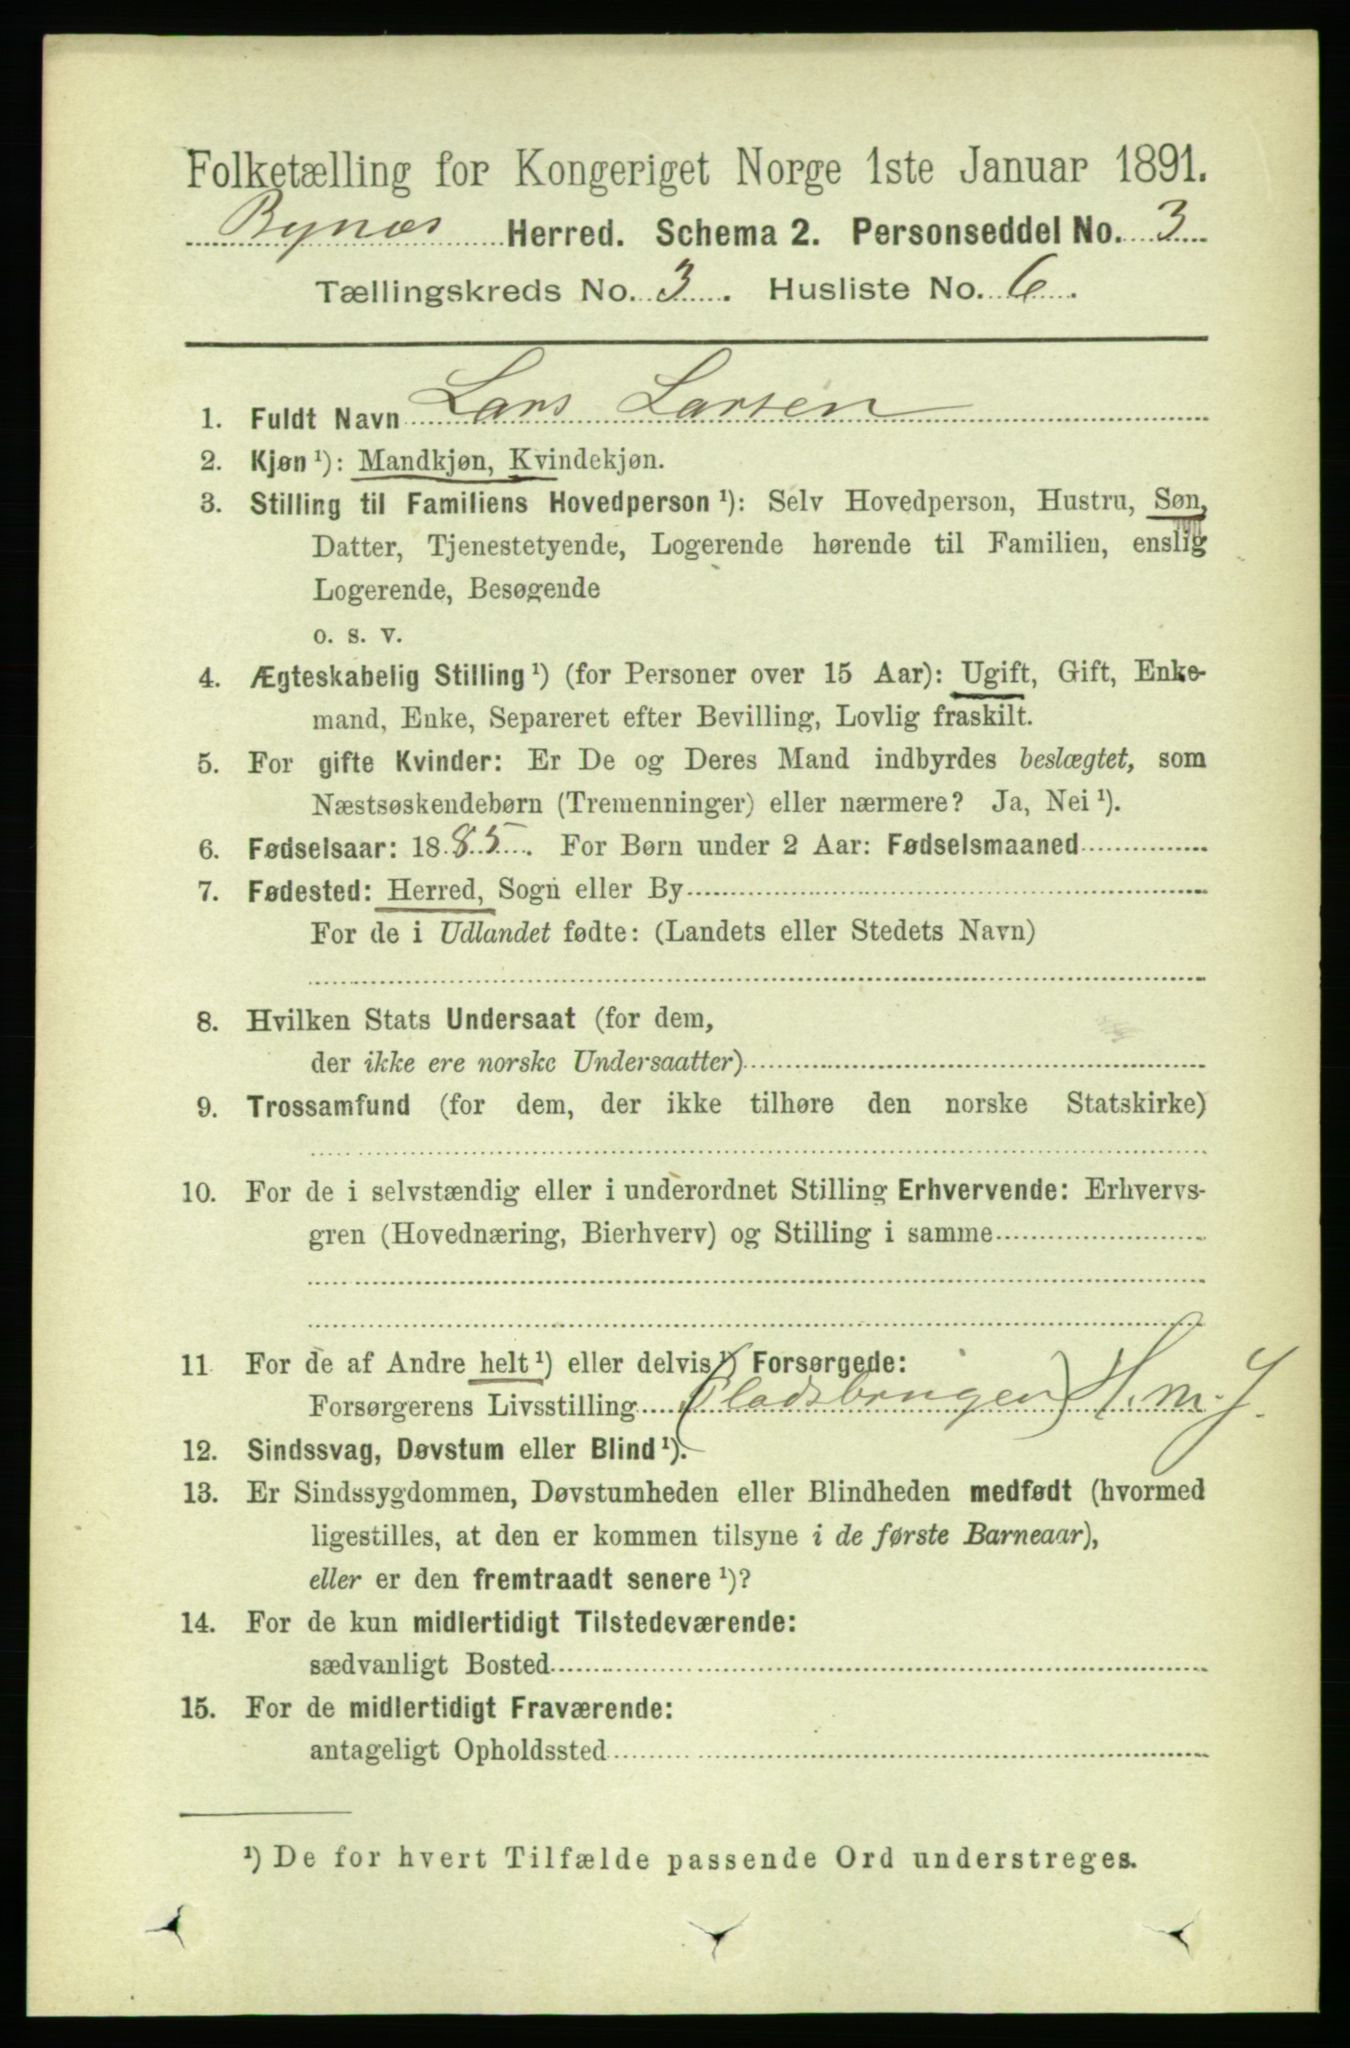 Folketælling for Kongeriget Norge 1ste Januar 1891.
Bynæs Herred. Schema 2. Personseddel No. 3
Tællingskreds No. 3. Husliste No. 6.
1. Fuldt Navn Lars Larsen
2. Kjøn ¹): Mandkjøn, Kvindekjøn.
3. Stilling til Familiens Hovedperson ¹): Selv Hovedperson, Hustru, Søn,
Datter, Tjenestetyende, Logerende hørende til Familien, enslig
Logerende, Besøgende
o. s. v.
4. Ægteskabelig Stilling ¹) (for Personer over 15 Aar): Ugift, Gift, Enke-
mand, Enke, Separeret efter Bevilling, Lovlig fraskilt.
5. For gifte Kvinder: Er De og Deres Mand indbyrdes beslægtet, som
Næstsøskendebørn (Tremenninger) eller nærmere? Ja, Nei ¹).
6. Fødselsaar: 1885. For Børn under 2 Aar: Fødselsmaaned
7. Fødested: Herred, Sogn eller By
For de i Udlandet fødte: (Landets eller Stedets Navn)
8. Hvilken Stats Undersaat (for dem,
der ikke ere norske Undersaatter)
9. Trossamfund (for dem, der ikke tilhøre den norske Statskirke)
10. For de i selvstændig eller i underordnet Stilling Erhvervende: Erhvervs-
gren (Hovednæring, Bierhverv) og Stilling i samme
11 For de af Andre helt ¹) eller delvis ¹) Forsørgede:
Forsørgerens Livsstilling (Pladsbruger) H. m. J.
12. Sindssvag, Døvstum eller Blind ¹).
13. Er Sindssygdommen, Døvstumheden eller Blindheden medfødt (hvormed
ligestilles, at den er kommen tilsyne i de første Barneaar),
eller er den fremtraadt senere ¹)?
14. For de kun midlertidigt Tilstedeværende:
sædvanligt Bosted
15. For de midlertidigt Fraværende:
antageligt Opholdssted
¹) De for hvert Tilfælde passende Ord understreges.